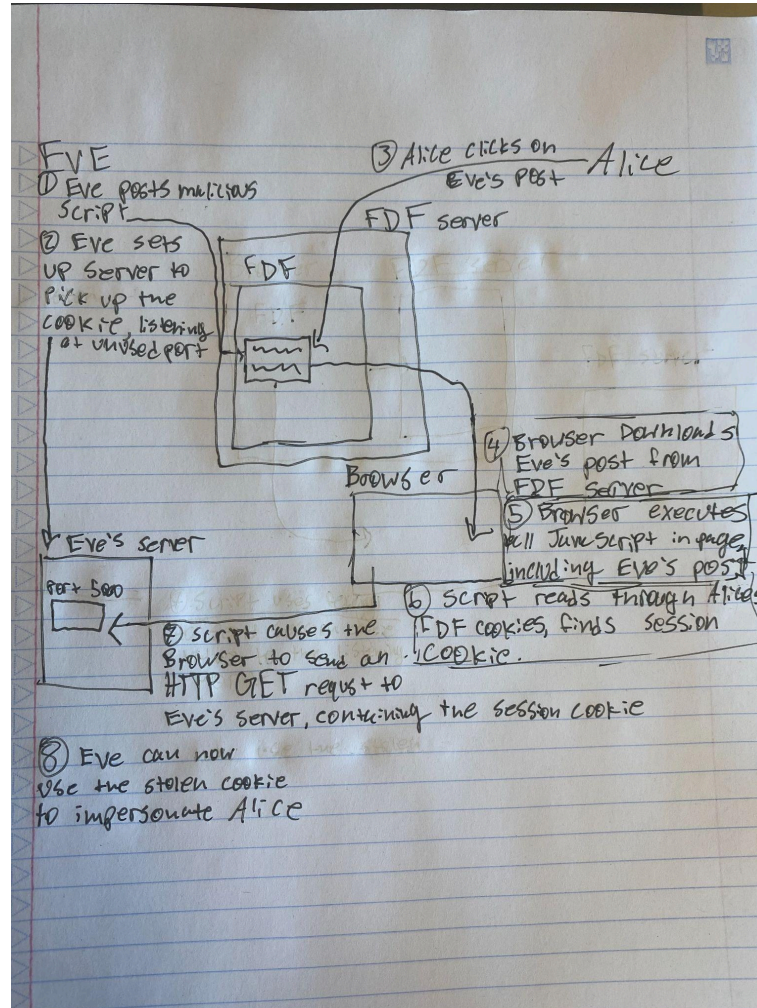 EVE
① Eve posts malicious
script
② Eve sets
up server to
pick up the
cookie, listening
at unused port
③ Alice clicks on
Eve's post
Alice
FDF server
FDF
Browser
④ Browser Downloads
Eve's post from
FDF Server
⑤ Browser executes
all JavaScript in page,
including Eve's post
⑥ Script reads through Alice's
FDF cookies, finds session
cookie.
Eve's server
port 5000
⑦ script causes the
Browser to send an
HTTP GET requst to
Eve's server, containing the session cookie
⑧ Eve can now
use the stolen cookie
to impersonate Alice